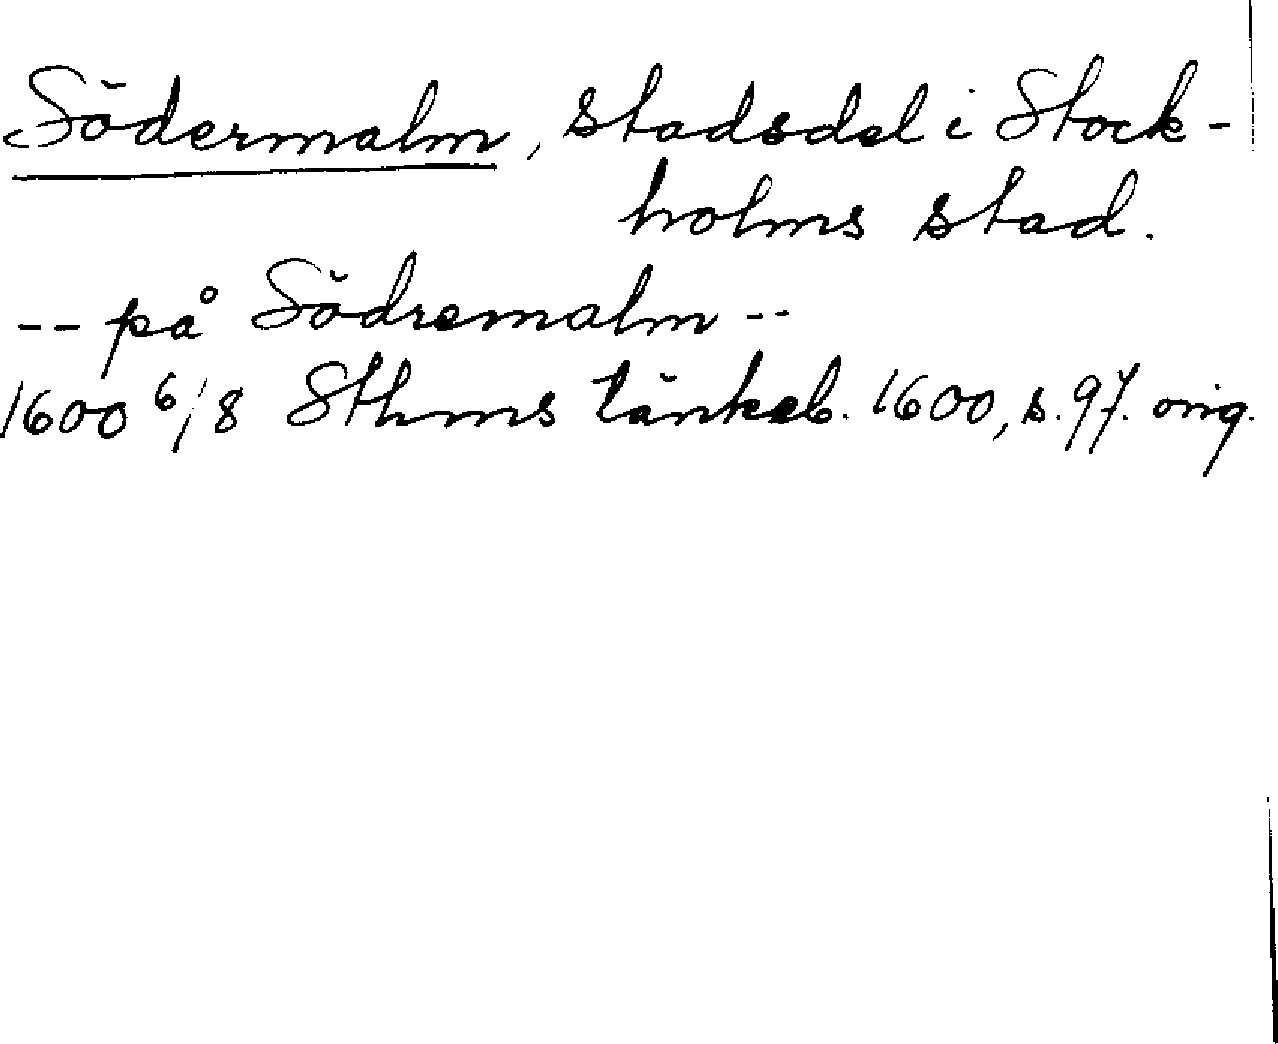 Södermalm, stadsdel i Stock-
holms stad.
-- på Södremalm --
1600 6/8 Sthms tänkeb. 1600, s. 97. orig.